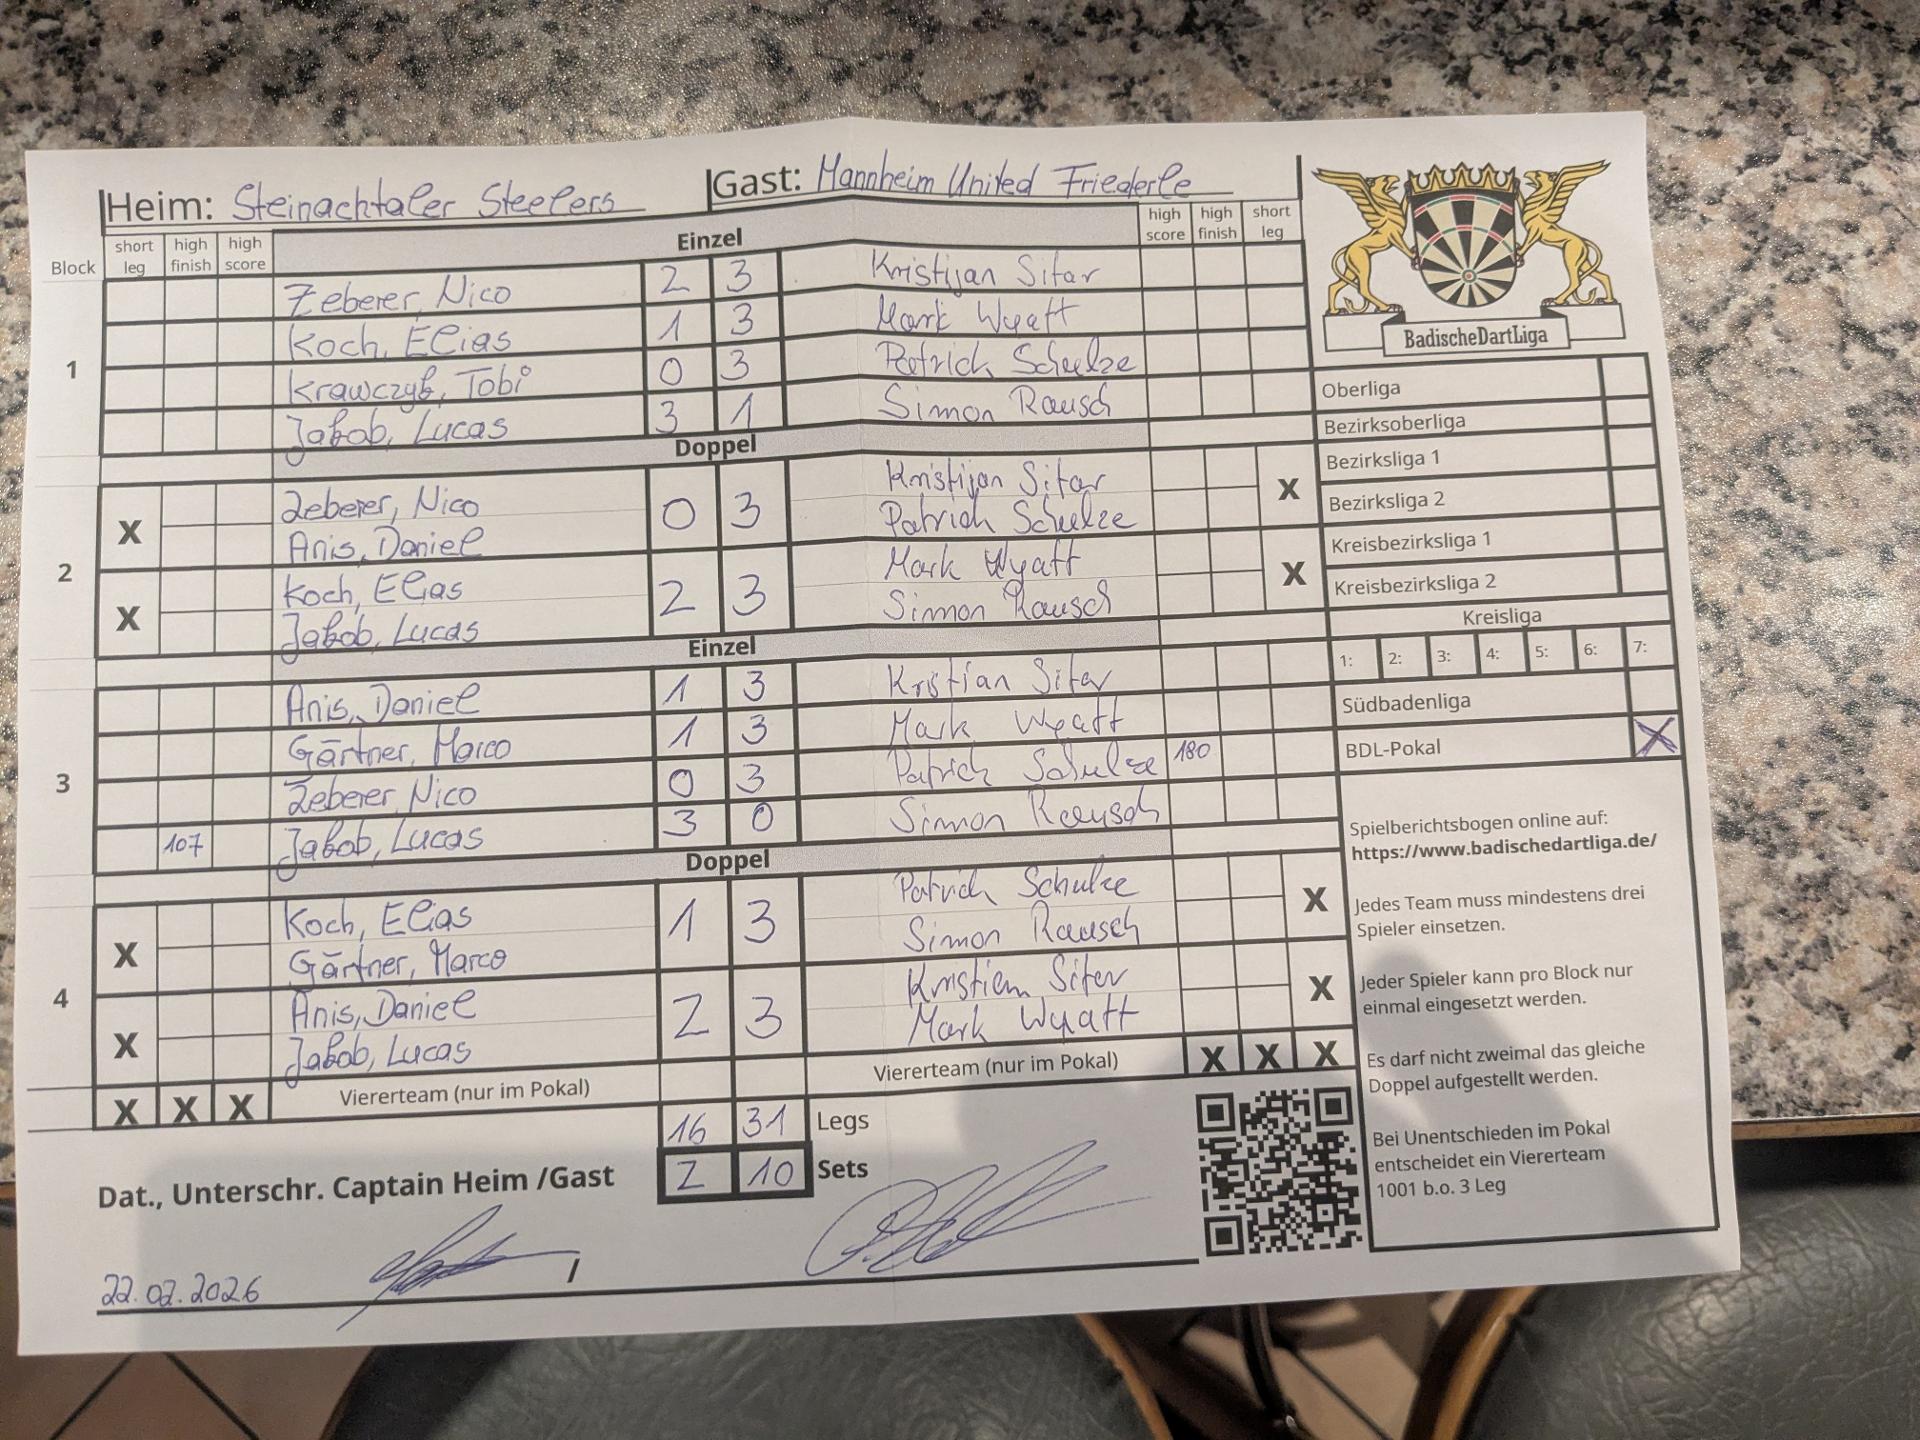 Heim: Steinachtaler Steelers
Gast: Mannheim United Friederle
Block short leg high finish high score Einzel high score high finish short leg
1
Zeberer, Nico 2 3 Kristijan Sitar
Koch, Elias 1 3 Mark Wyatt
Krawczyk, Tobi 0 3 Patrick Schulze
Jakob, Lucas 3 1 Simon Rausch
Doppel
2
X Zeberer, Nico 0 3 Kristijan Sitar X
Anis, Daniel Patrick Schulze
X Koch, Elias 2 3 Mark Wyatt X
Jakob, Lucas Simon Rausch
Einzel
3
Anis, Daniel 1 3 Kristian Sitar
Gärtner, Marco 1 3 Mark Wyatt
Zeberer, Nico 0 3 Patrick Schulze 180
107 Jakob, Lucas 3 0 Simon Rausch
Doppel
4
X Koch, Elias 1 3 Patrick Schulze X
Gärtner, Marco Simon Rausch
X Anis, Daniel 2 3 Kristian Sitar X
Jakob, Lucas Mark Wyatt
X X X Viererteam (nur im Pokal) Viererteam (nur im Pokal) X X X
16 31 Legs
2 10 Sets
Dat., Unterschr. Captain Heim /Gast
22.02.2026 /
BadischeDartLiga
Oberliga
Bezirksoberliga
Bezirksliga 1
Bezirksliga 2
Kreisbezirksliga 1
Kreisbezirksliga 2
Kreisliga
1: 2: 3: 4: 5: 6: 7:
Südbadenliga
BDL-Pokal X
Spielberichtsbogen online auf:
https://www.badischedartliga.de/
Jedes Team muss mindestens drei
Spieler einsetzen.
Jeder Spieler kann pro Block nur
einmal eingesetzt werden.
Es darf nicht zweimal das gleiche
Doppel aufgestellt werden.
Bei Unentschieden im Pokal
entscheidet ein Viererteam
1001 b.o. 3 Leg